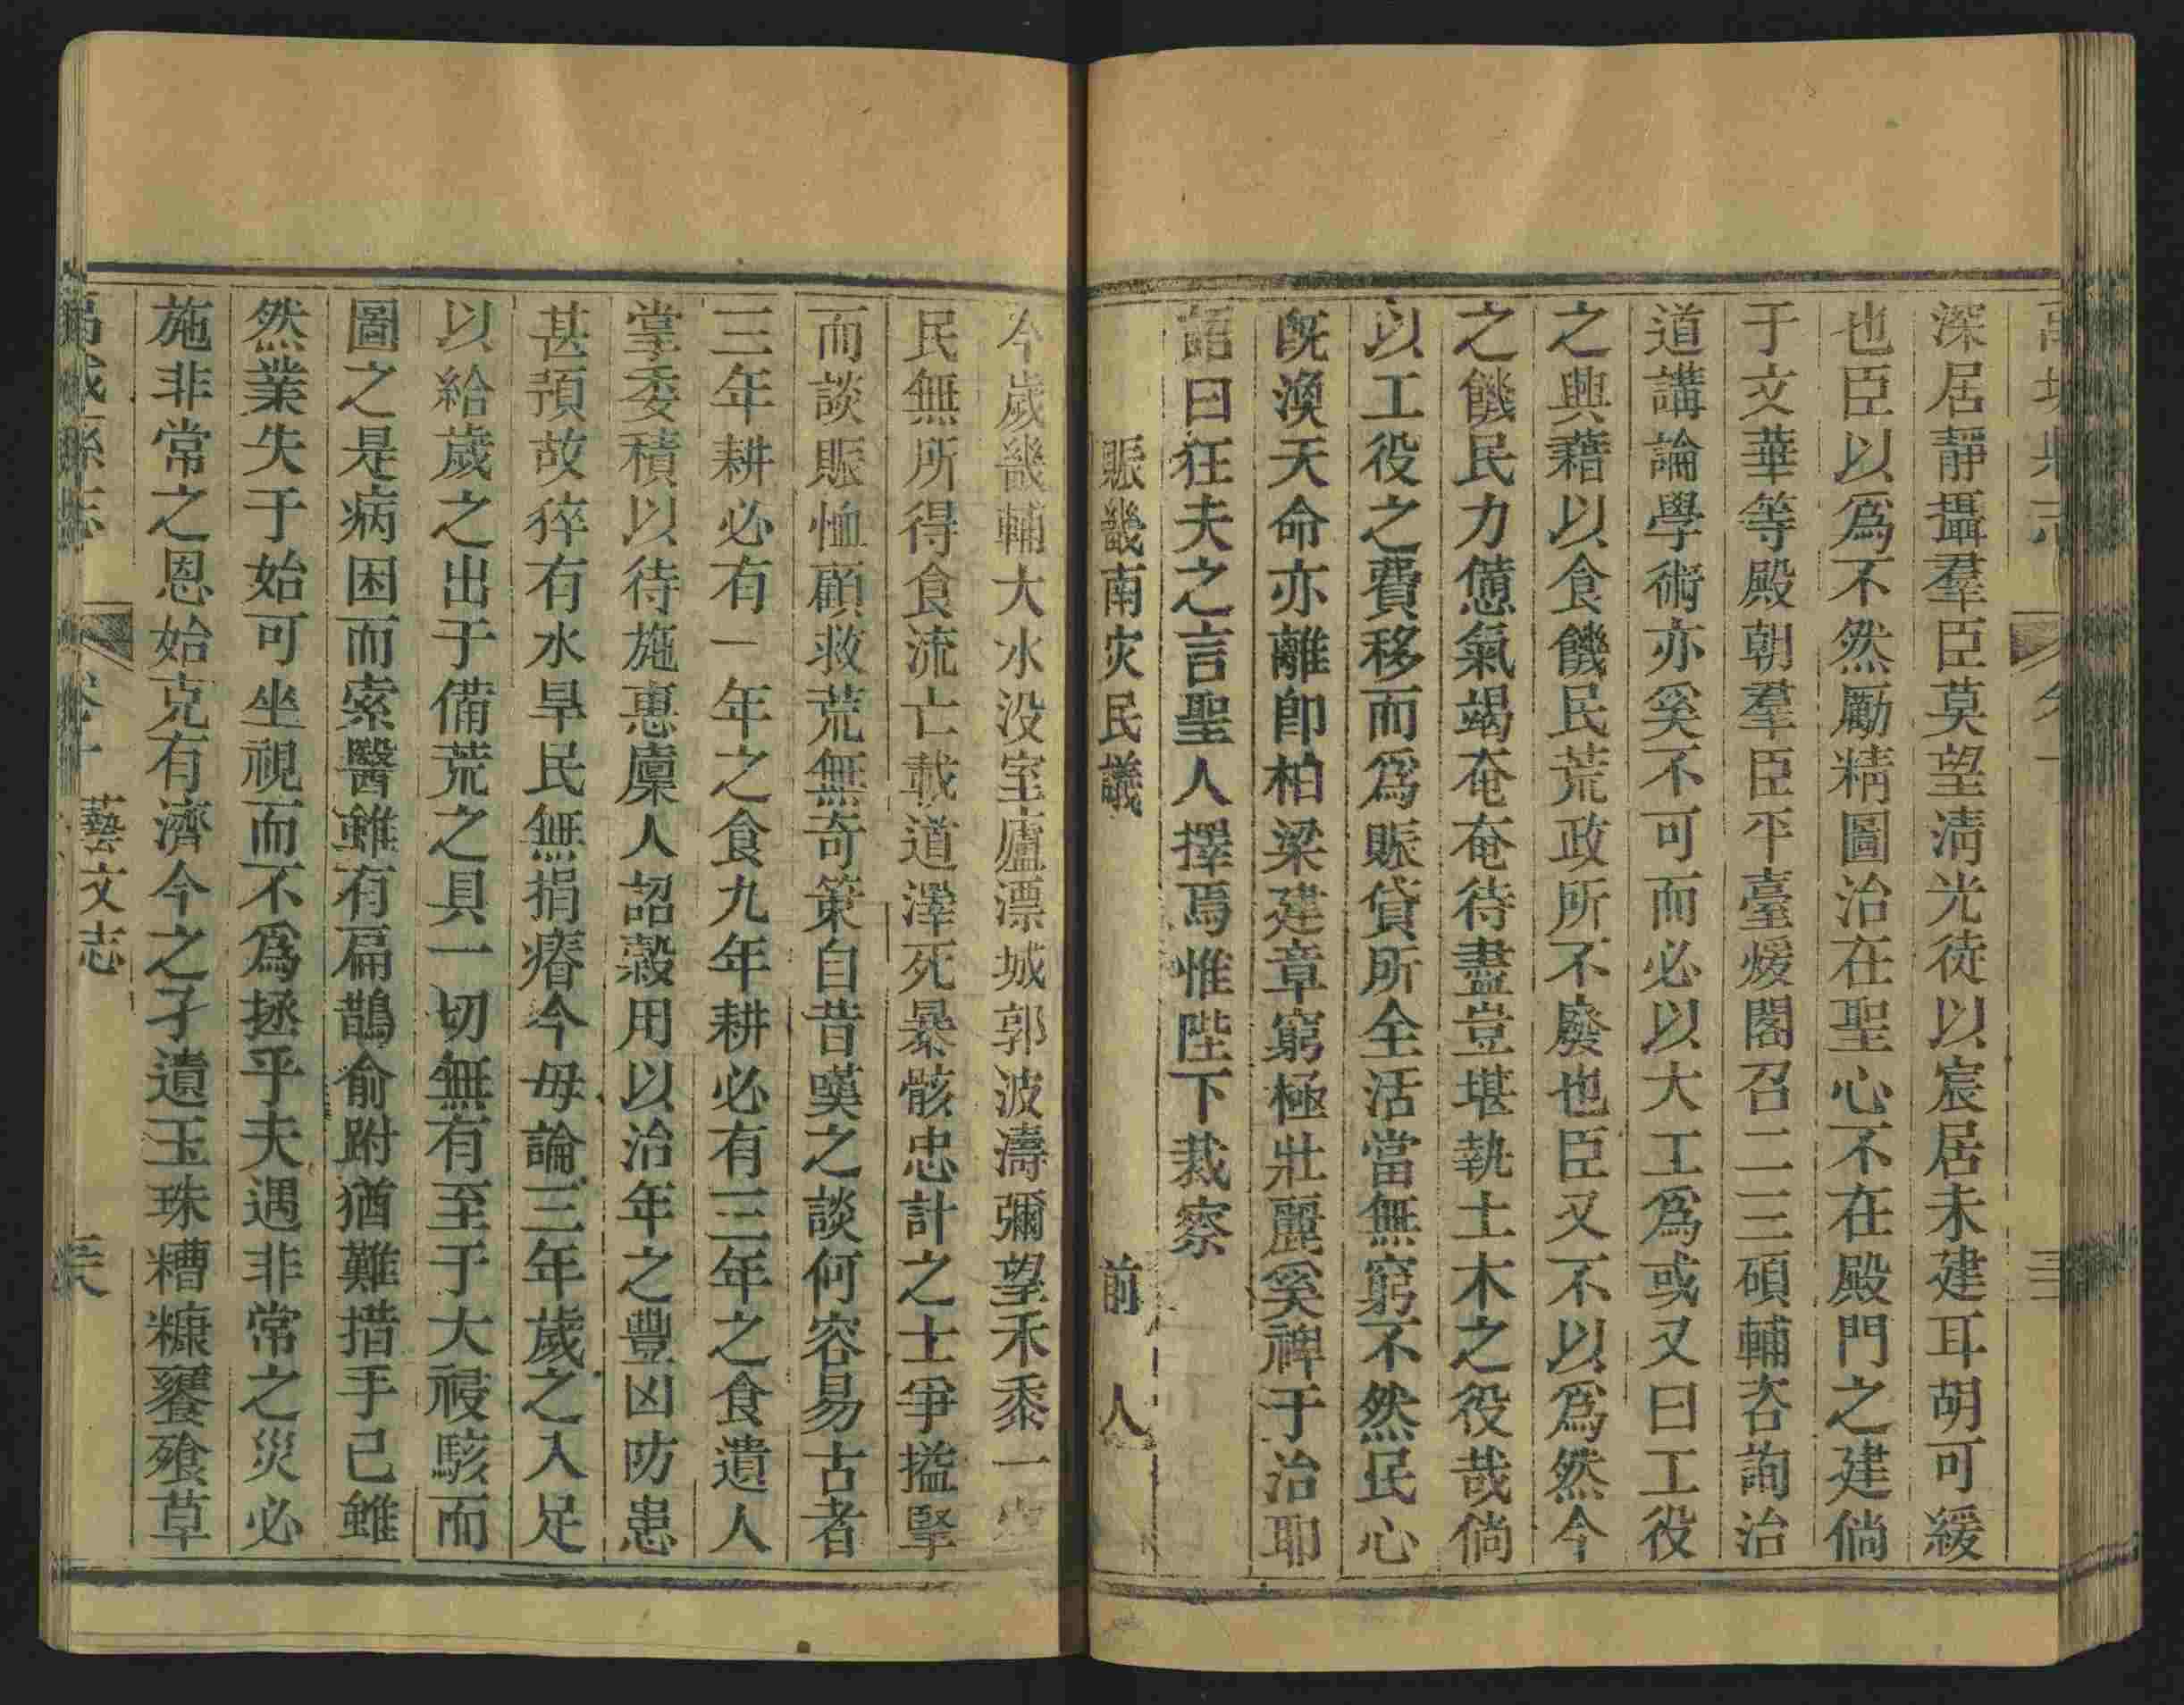 深居靜攝羣臣莫望淸光徒以宸居未建耳胡可緩
也臣以爲不然勵精圖治在聖心不在殿門之建倘
于文華等殿朝羣臣平臺煖閣召二三碩輔咨詢治
道講論學術亦奚不可而必以大工爲或又曰工役
之興藉以食饑民荒政所不廢也臣又不以爲然今
之饑民力憊氣竭奄奄待盡豈堪執土木之役哉倘
以工役之費移而爲賑貸所全活當無窮不然民心
旣渙天命亦離卽柏梁建章窮極壯麗奚裨于治耶
語曰狂夫之言聖人擇焉惟陛下裁察
賑畿南灾民議 前人
今歲畿輔大水没室廬漂城郭波濤彌望禾黍一
民無所得食流亡載道澤死暴骸忠計之士爭搤掔
而談賑恤顧救荒無奇策自昔嘆之談何容易古者
三年耕必有一年之食九年耕必有三年之食遺人
掌委積以待施惠廩人詔穀用以治年之豐凶防患
甚預故猝有水旱民無捐瘠今毋論三年歲之入足
以給歲之出于備荒之具一切無有至于大祲駭而
圖之是病困而索醫雖有扁鵲俞跗猶難措手已雖
然業失于始可坐視而不爲拯乎夫遇非常之災必
施非常之恩始克有濟今之孑遺玉珠糟糠饔飧草
藝文志